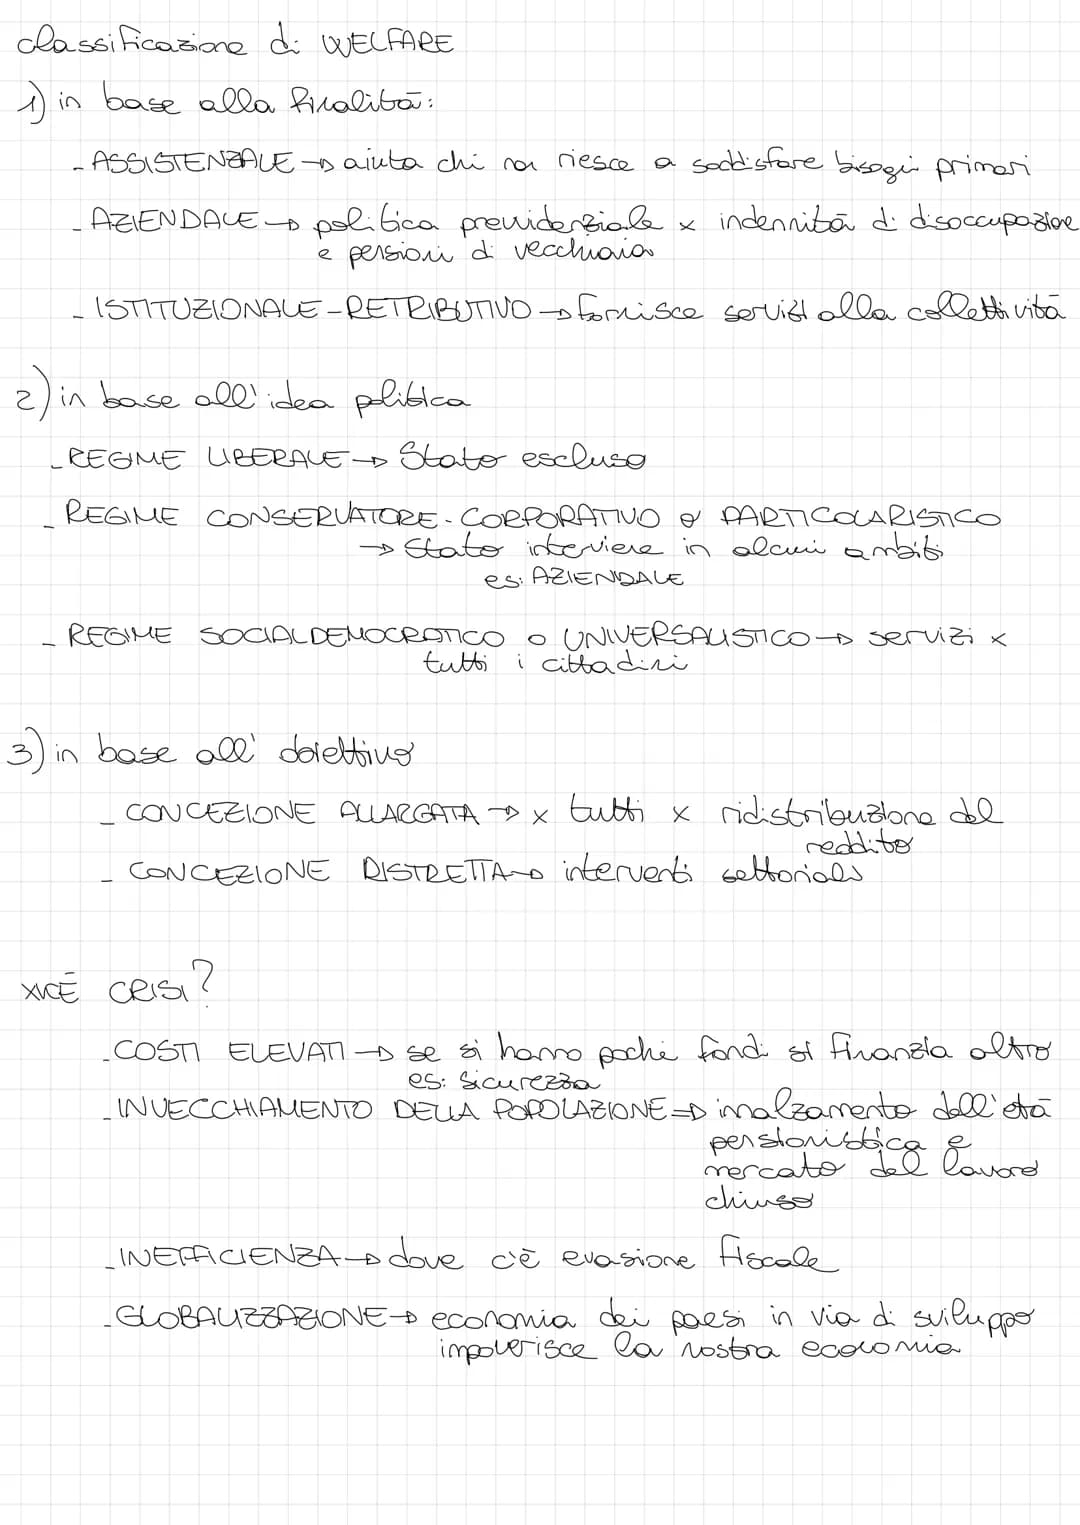 classificazione di WELFARE
1) in base alla finalità:
- ASSISTENZIALE → aiuta chi non riesce a soddisfare bisogni primari
- AZIENDALE → politica previdenziale x indennità di disoccupazione
e pensioni di vecchiaia
- ISTITUZIONALE-RETRIBUTIVO → fornisce servizi alla collettività
2) in base all'idea politica
- REGIME LIBERALE → Stato escluso
- REGIME CONSERVATORE-CORPORATIVO o PARTICOLARISTICO
→ Stato interviene in alcuni ambiti
es: AZIENDALE
- REGIME SOCIALDEMOCRATICO o UNIVERSALISTICO → servizi x
tutti i cittadini
3) in base all'obiettivo
- CONCEZIONE ALLARGATA → x tutti x ridistribuzione del
reddito
- CONCEZIONE RISTRETTA → interventi settoriali
XK'È CRISI?
- COSTI ELEVATI → se si hanno pochi fondi si finanzia altro
es: sicurezza
- INVECCHIAMENTO DELLA POPOLAZIONE → innalzamento dell'età
pensionistica e
mercato del lavoro
chiuso
- INEFFICIENZA → dove c'è evasione fiscale
- GLOBALIZZAZIONE → economia dei paesi in via di sviluppo
impoverisce la nostra economia